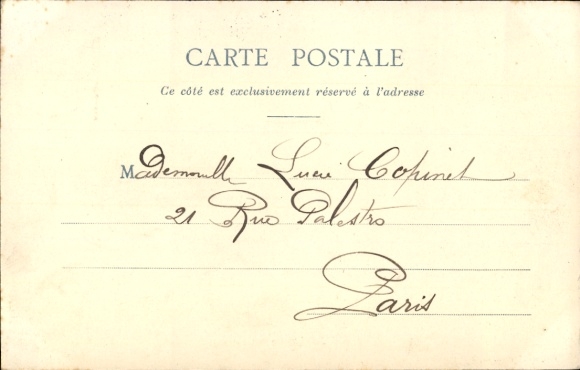 CARTE POSTALE
Ce côté est exclusivement réservé à l'adresse
Mademoiselle Lucie Copinet
21 Rue Palestro
Paris